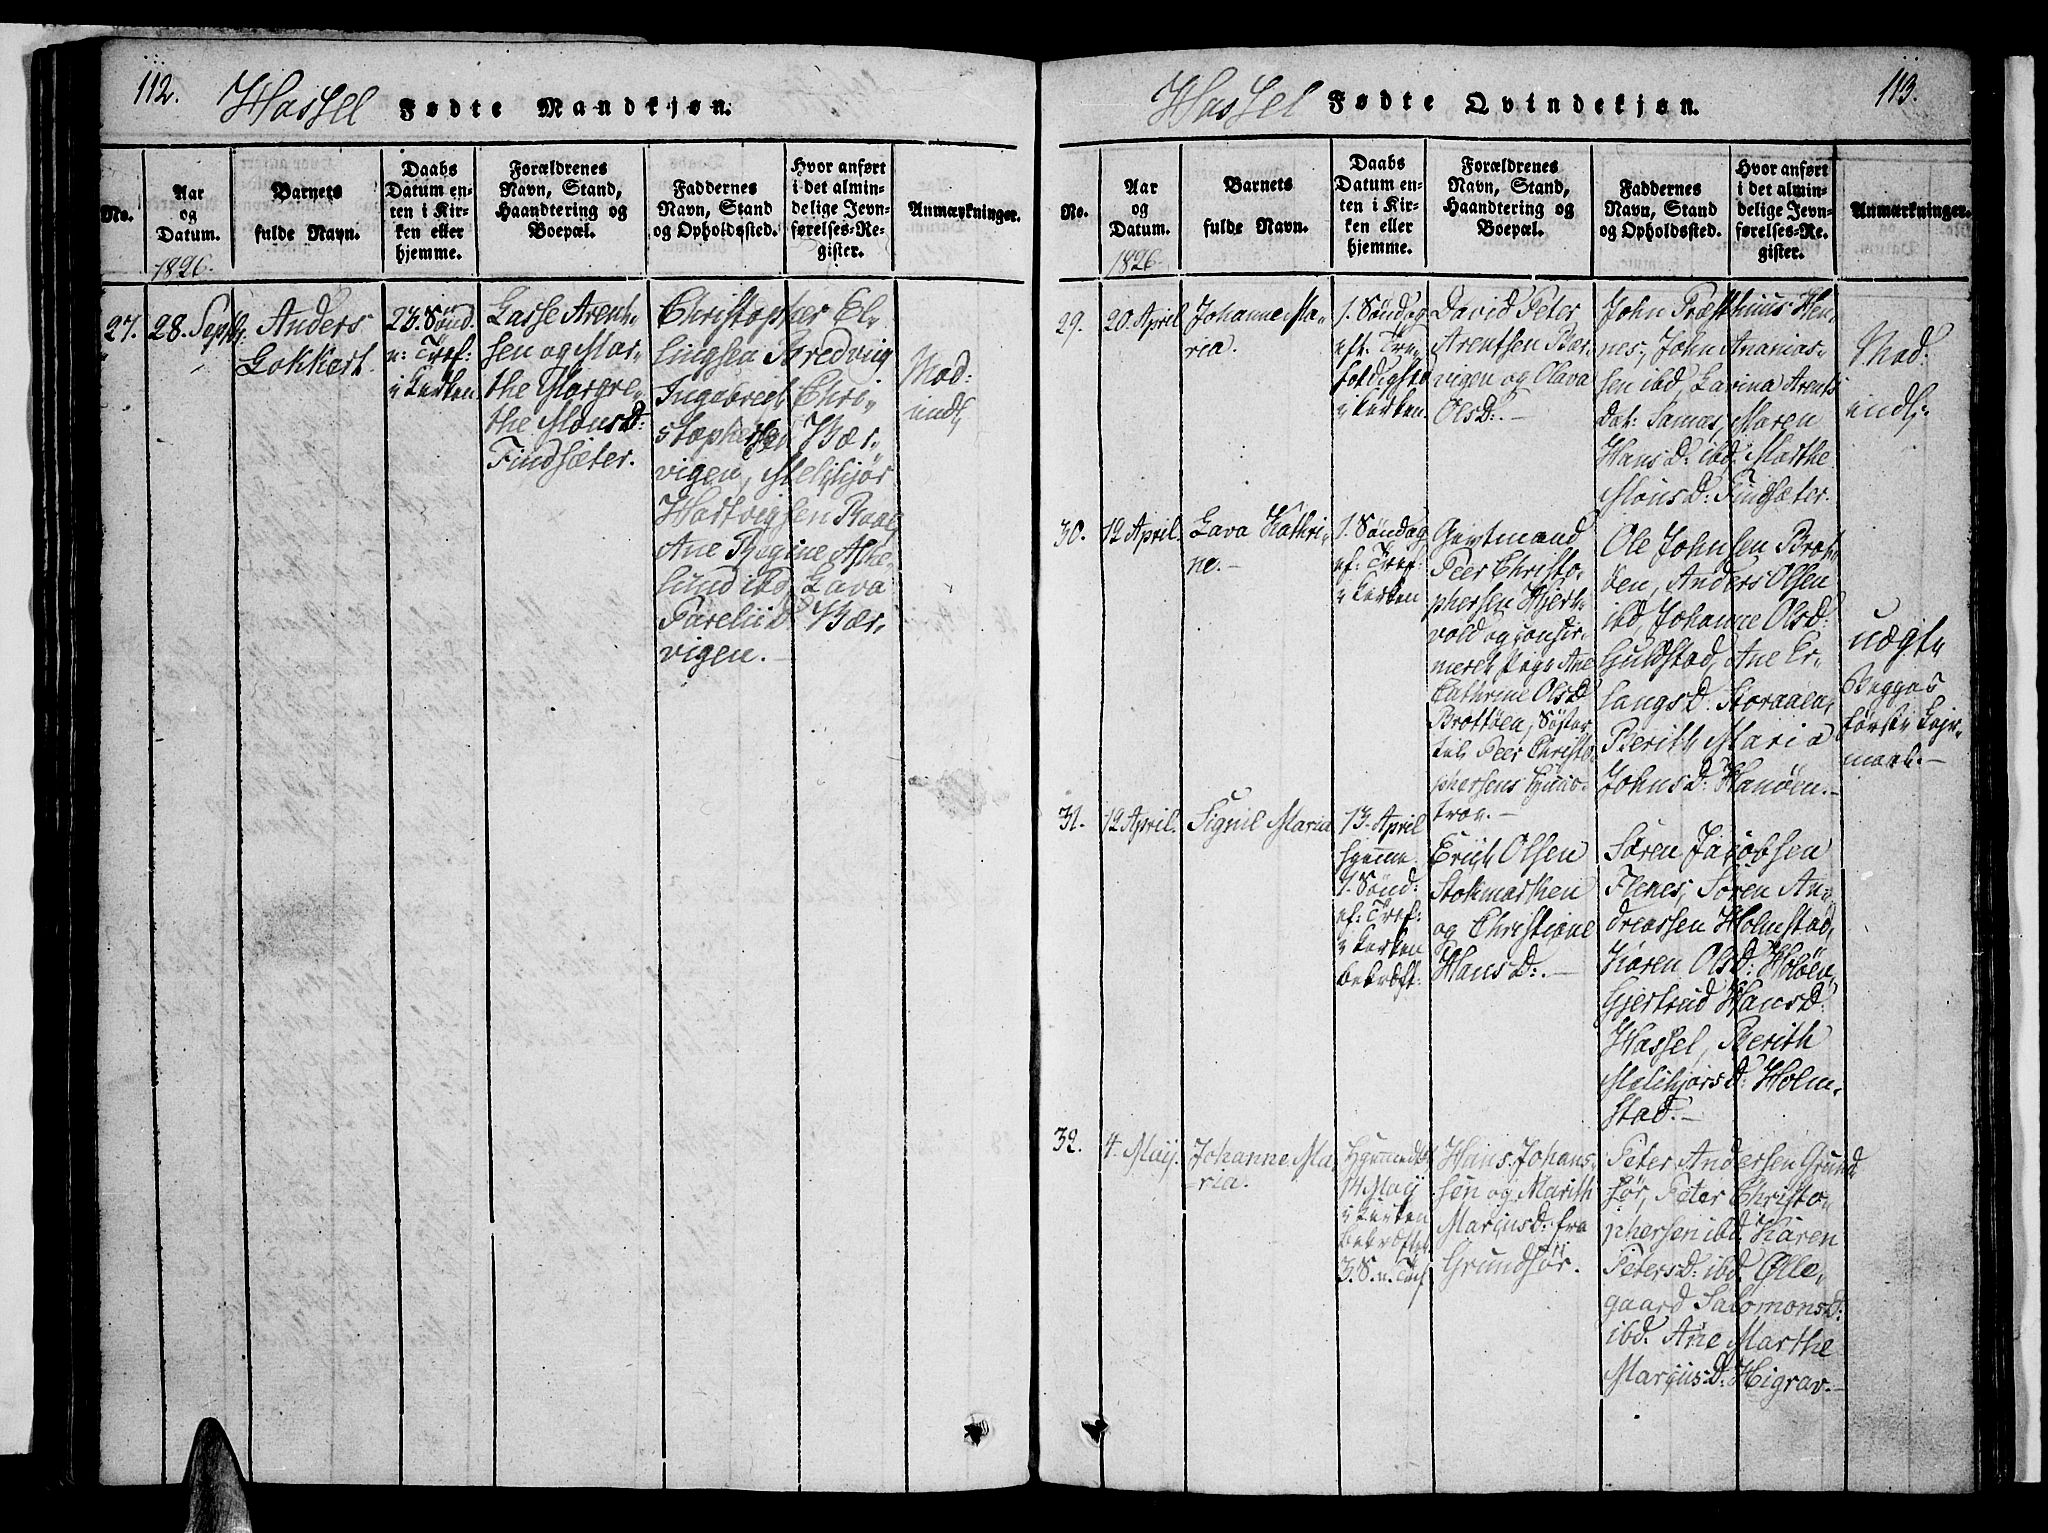 112.
Hassel Fødte Mandkjøn.
No.
Aar
og
Datum.
1826.
Barnets
fulde Navn.
Daabs
Datum en-
ten i Kir-
ken eller
hjemme.
Forældrenes
Navn, Stand,
Haandtering og
Boepæl.
Faddernes
Navn, Stand
og Opholdssted.
Hvor anført
i det almin-
delige Jevn-
førelses-Re-
gister.
Anmærkninger.
27.
28. Septbr:
Anders
Lokkert.
23. Sønd.
n: Tref:
i Kirken
Lasse Arent-
sen og Mar-
the Margre-
the Monsd:
Findsæter.
Christopher El-
lingsen Bredvig
Ingebregt Chri-
stophersen Bær-
vigen, Melchjør
Hartvigsen
Ane Regine
ibd, Lava
Parelii D: Bær-
vigen.
Mod:
indf
113.
Hassel Fødte Qvindekjøn.
No.
Aar
og
Datum.
1826
Barnets
fulde Navn.
Daabs
Datum en-
ten i Kir-
ken eller
hjemme.
Forældrenes
Navn, Stand,
Haandtering og
Boepæl.
Faddernes
Navn, Stand
og Opholdssted.
Hvor anført
i det almin-
delige Jevn-
førelses-Re-
gister.
Anmærkninger.
29.
20. April
Johanne Ma-
ria.
1. Søndag
eft. Tre-
foldighed
i Kirken
David Peter
Arentsen Bær-
vigen og Olava
Olsd: -
John Præsthuus Hen-
nes, John Ananias-
sen ibd, Lavina Arents
Dat: Samas, Maren
Hans D: ibd, Marthe
Mons D: Findsæter.
Mod:
indf:
30.
12 April.
Lava Kathri-
ne. -
1. Søndag
ef: Tref:
i Kirken
Givtmand
Peer Christo-
phersen Hjert-
vold og confir-
meret Pige Ane
Cathrine Olsd
Brottøen, Søster
til Peer Christo-
phersens Huus-
trov. -
Ole Johnsen Brot-
tøen, Anders Olsen
ibd, Johanne Olsd:
Guldstad, Ane Er-
langs D: Storaaen,
Berith Maria
Johns D: Hanøen. -
uægt
Begges
første Lejr-
maal. -
31.
12 April.
Signil Maria
13. April
hjemme
1. Sønd:
ef: Tref:
i Kirken
bekræft:
Erich Olsen
Stokmarken
og Christiane
Hans D: -
Søren Jacobsen
Flenes, Søren An-
dreassen Holmstad,
Karen Ols D: Holøen,
Gjertrud Hans D:
Hassel, Berith
Melchjors D: Holm-
stad. -
32.
4. Maij.
Johanne Ma-
ria.
Hjemedøb
14 Maij
i Kirken
bekræftet
3. S. n. Tref
Hans Johans-
sen og Marith
Mariusd: fra
Grundfør.
Peter Andersen Grund
før, Peter Christo-
phersen ibd. Karen
Peters D: ibd. Ølle-
gaard Salomons D:
ibd. Ane Marthe
Marius D: Higrav. -